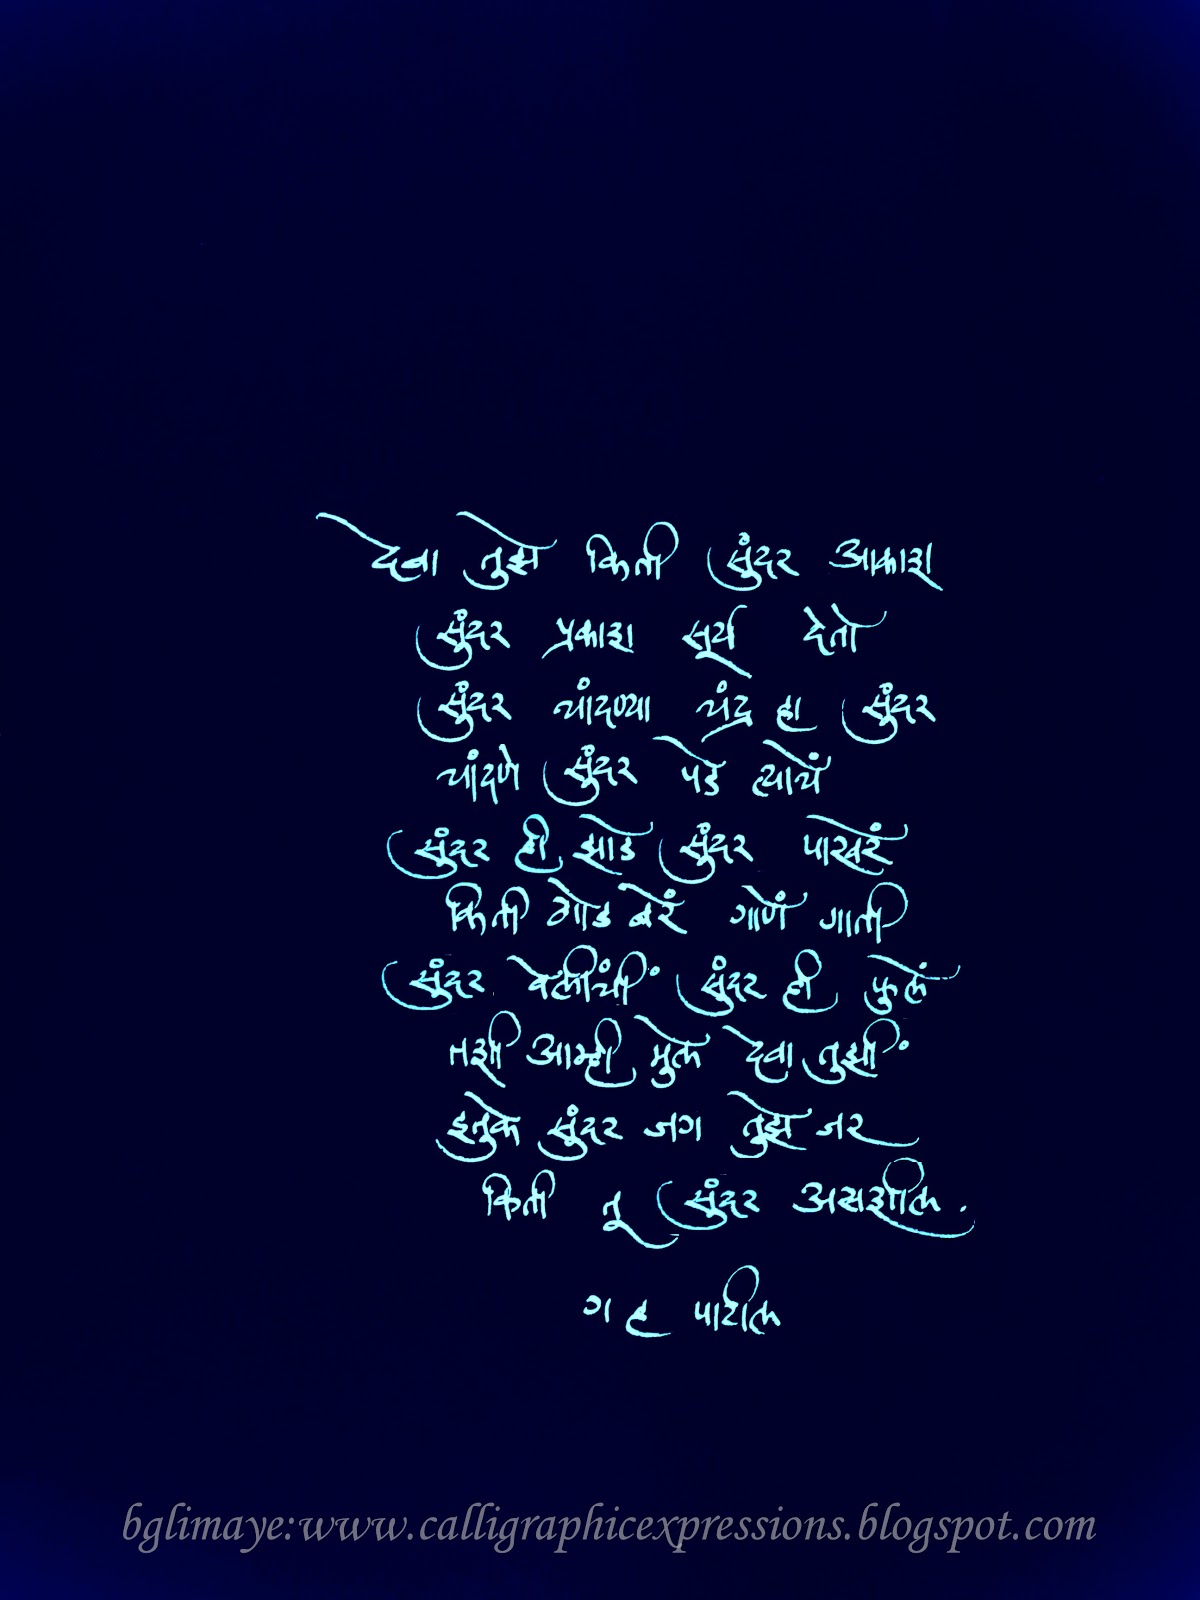 देवा तुझे किती सुंदर आकाश
सुंदर प्रकाश सूर्य देतो
सुंदर चांदण्या चंद्र हा सुंदर
चांदणे सुंदर पडे त्याचें
सुंदर ही झाडे सुंदर पाखरें
किती गोड बरें गाणें गाती
सुंदर वेलींचीं सुंदर ही फुलें
तशी आम्ही मुले देवा तुझीं
इतुके सुंदर जग तुझे जर
किती तू सुंदर असशील.
ग ह पाटील
bglimaye:www.calligraphicexpressions.blogspot.com